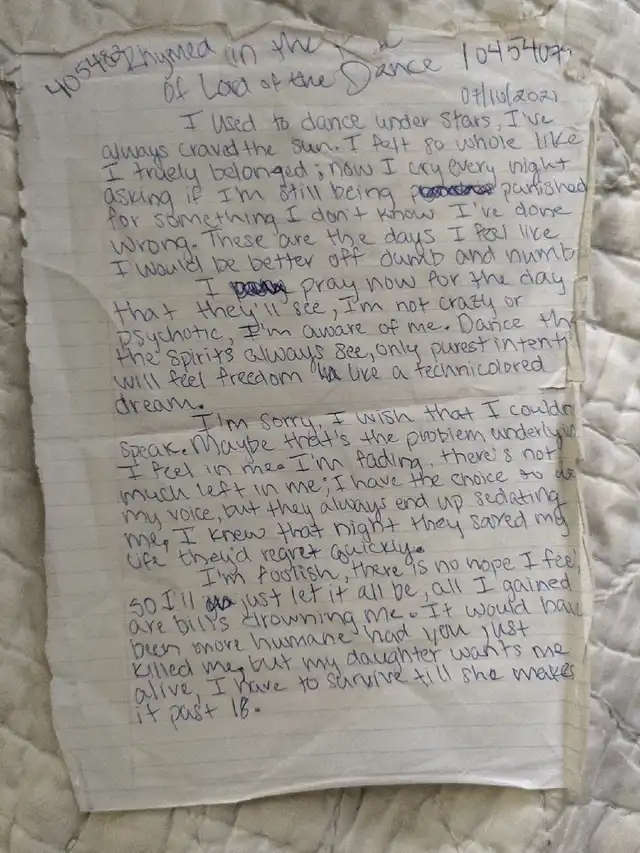 Rhymed in the
10454079
Of Lord of the Dance
07/16/2021
I used to dance under stars, I've
always craved the sun. I felt so whole like
I truely belonged; now I cry every night
asking if I'm still being punished
for something I don't know I've done
wrong. These are the days I feel like
I would be better off dumb and numb
I pray now for the day
that they'll see, I'm not crazy or
psychotic, I'm aware of me. Dance th
the spirits always see, only purest intent
will feel freedom like a technicolored
dream.
I'm sorry, I wish that I couldn
speak. Maybe that's the problem underlyin
I feel in me. I'm fading, there's not
much left in me; I have the choice to us
my voice, but they always end up sedating
me, I knew that night they saved my
life they'd regret quickly.
I'm foolish, there is no hope I feel
so I'll just let it all be, all I gained
are bills drowning me. It would have
been more humane had you just
killed me, but my daughter wants me
alive, I have to survive till she makes
it past 18.